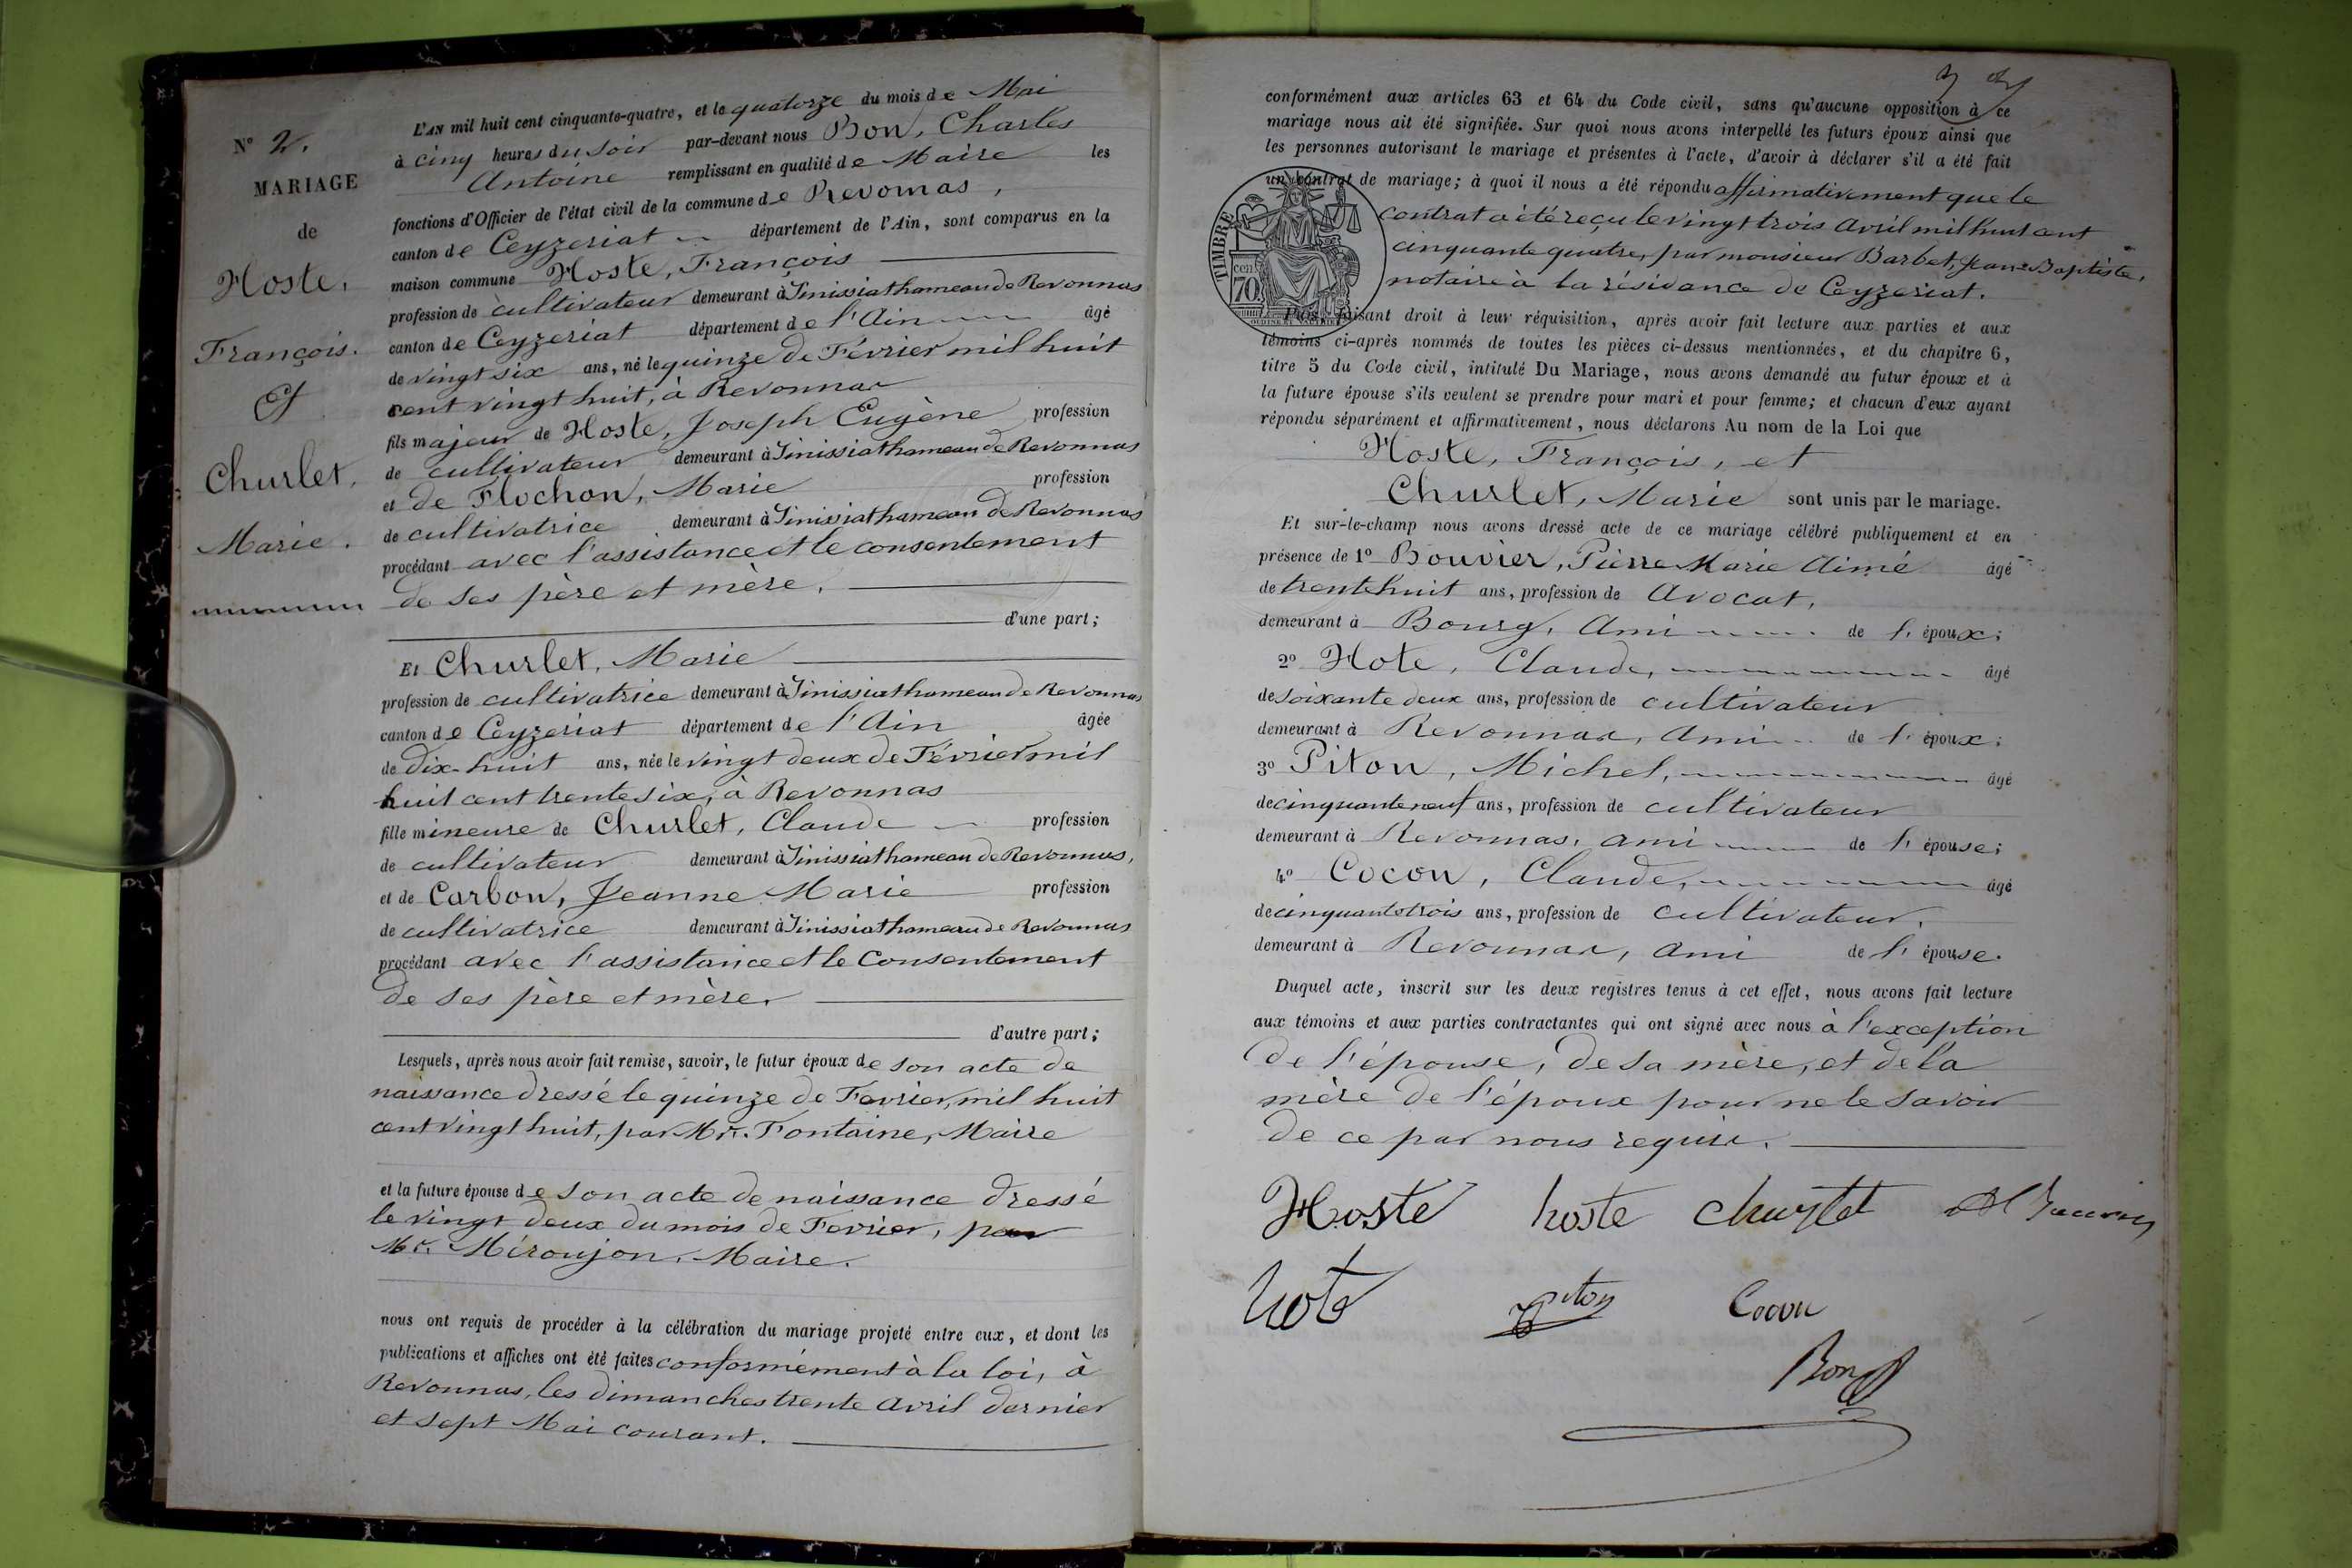 N° 2.
MARIAGE
de
Hoste,
François.
Et
Churlet,
Marie.
L'AN mil huit cent cinquante-quatre, et le quatorze du mois de Mai
à cinq heures du soir par-devant nous Bon, Charles
Antoine remplissant en qualité de Maire les
fonctions d'Officier de l'état civil de la commune de Revonnas,
canton de Ceyzeriat département de l'Ain, sont comparus en la
maison commune Hoste, François
profession de cultivateur demeurant à Sinissiat hameau de Revonnas
canton de Ceyzeriat département de l'Ain âgé
de vingt six ans, né le quinze de Février mil huit
cent vingt huit, à Revonnas
fils majeur de Hoste, Joseph Eugène profession
de cultivateur demeurant à Sinissiat hameau de Revonnas
et de Flochon, Marie profession
de cultivatrice demeurant à Sinissiat hameau de Revonnas
procédant avec l'assistance et le consentement
de ses père et mère.
d'une part;
Et Churlet, Marie
profession de cultivatrice demeurant à Sinissiat hameau de Revonnas
canton de Ceyzeriat département de l'Ain âgée
de dix-huit ans, née le vingt deux de Février mil
huit cent trente six, à Revonnas
fille mineure de Churlet, Claude profession
de cultivateur demeurant à Sinissiat hameau de Revonnas,
et de Carbon, Jeanne Marie profession
de cultivatrice demeurant à Sinissiat hameau de Revonnas
procédant avec l'assistance et le consentement
de ses père et mère.
d'autre part;
Lesquels, après nous avoir fait remise, savoir, le futur époux de son acte de
naissance dressé le quinze de Fevrier, mil huit
cent vingt huit, par Mr. Fontaine, Maire
et la future épouse de son acte de naissance dressé
le vingt deux du mois de Fevrier, par
Mr. Méroujon, Maire.
nous ont requis de procéder à la célébration du mariage projeté entre eux, et dont les
publications et affiches ont été faites conformément à la loi, à
Revonnas, les dimanches trente avril dernier
et sept Mai courant.
conformément aux articles 63 et 64 du Code civil, sans qu'aucune opposition à ce
mariage nous ait été signifiée. Sur quoi nous avons interpellé les futurs époux ainsi que
les personnes autorisant le mariage et présentes à l'acte, d'avoir à déclarer s'il a été fait
un contrat de mariage; à quoi il nous a été répondu affirmativement que le
contrat a été reçu le vingt trois avril mil huit cent
cinquante quatre, par monsieur Barbet, Jean-Baptiste,
notaire à la résidance de Ceyzeriat.
TIMBRE
cen. 70
faisant droit à leur réquisition, après avoir fait lecture aux parties et aux
témoins ci-après nommés de toutes les pièces ci-dessus mentionnées, et du chapitre 6,
titre 5 du Code civil, intitulé Du Mariage, nous avons demandé au futur époux et à
la future épouse s'ils veulent se prendre pour mari et pour femme; et chacun d'eux ayant
répondu séparément et affirmativement, nous déclarons Au nom de la Loi que
Hoste, François, et
Churlet, Marie sont unis par le mariage.
Et sur-le-champ nous avons dressé acte de ce mariage célébré publiquement et en
présence de 1° Bouvier, Pierre Marie Aimé âgé
de trente huit ans, profession de Avocat,
demeurant à Bourg, Ami de l'époux;
2° Hote, Claude, âgé
de soixante deux ans, profession de cultivateur
demeurant à Revonnas, Ami de l'époux;
3° Piton, Michel, âgé
de cinquante neuf ans, profession de cultivateur
demeurant à Revonnas, ami de l'épouse;
4° Cocon, Claude, âgé
de cinquante trois ans, profession de cultivateur,
demeurant à Revonnas, ami de l'épouse.
Duquel acte, inscrit sur les deux registres tenus à cet effet, nous avons fait lecture
aux témoins et aux parties contractantes qui ont signé avec nous à l'exception
de l'épouse, de sa mère, et de la
mère de l'époux pour ne le savoir
de ce par nous requis.
Hoste hoste churlet
hote Piton Cocon
Bon